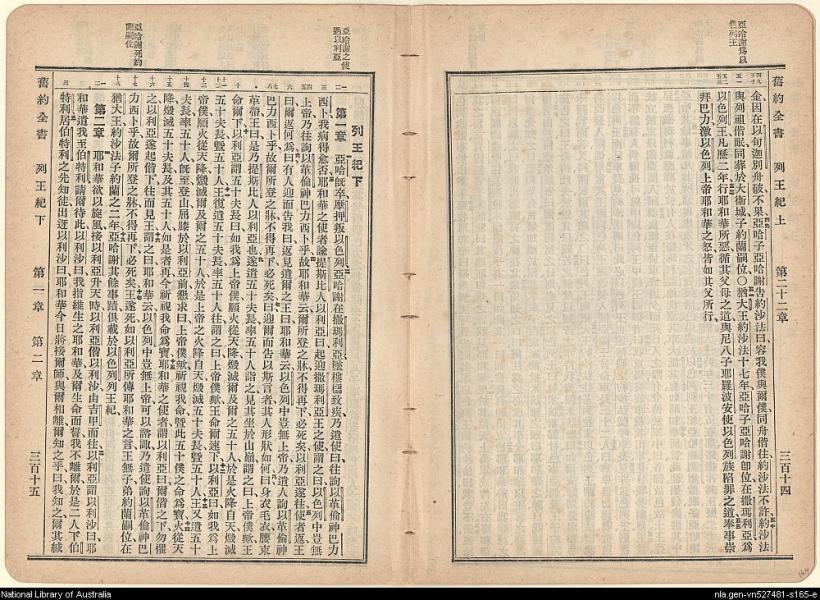 亞哈謝爲以
色列王
舊約全書 列王紀上 第二十二章 三百十四
金因在以旬迦別舟破不果亞哈子亞哈謝告約沙法曰容我僕與爾僕同舟偕往約沙法不許約沙法
與列祖偕眠同葬於大衛城子約蘭嗣位○猶大王約沙法十七年亞哈子亞哈謝卽位在撒瑪利亞爲
以色列王凡歷二年行耶和華所惡循其父母之道與尼八子耶羅波安使以色列族陷罪之道奉事崇
拜巴力激以色列上帝耶和華之怒皆如其父所行
亞哈謝之使
遇以利亞
亞哈謝死約
蘭嗣位
列王紀下
第一章 亞哈旣卒摩押叛以色列亞哈謝在撒瑪利亞墜樓櫺致疾乃遣使曰往詢以革倫神巴力
西卜我病得愈否耶和華之使者諭提斯比人以利亞曰起迎撒瑪利亞王之使謂之曰以色列中豈無
上帝乃往詢以革倫神巴力西卜乎故耶和華云爾所登之牀不得再下必死矣以利亞遂往使者返王
曰爾返何爲曰有人迎而告我曰返見遣爾之王曰耶和華云以色列中豈無上帝乃遣人詢以革倫神
巴力西卜乎故爾所登之牀不得再下必死矣曰迎爾而告以斯言者其人形狀如何曰身衣毛衣腰束
革帶王曰是乃提斯比人以利亞也遂遣五十夫長率五十人詣之見其坐於山巔謂之曰上帝僕歟王
命爾下以利亞謂五十夫長曰如我爲上帝僕願火從天降燬滅爾及爾之五十人於是火降自天燬滅
五十夫長曁五十人王復遣五十夫長率五十人往謂之曰上帝僕歟王命爾速下以利亞曰如我爲上
帝僕願火從天降燬滅爾及爾之五十人於是上帝之火降自天燬滅五十夫長曁五十人王又遣五十
夫長率五十人旣至登山屈膝於以利亞前懇求曰上帝僕歟祈視我命曁此五十僕之命爲寶火從天
降燬滅五十夫長及其五十人如是者再今祈視我命爲寶耶和華之使者謂以利亞曰爾偕之下勿懼
之以利亞遂起偕下往而見王謂之曰耶和華云以色列中豈無上帝可以諮諏乃遣使詢以革倫神巴
力西卜乎故爾所登之牀不得再下必死矣王遂死如以利亞所傳耶和華之言王無子弟約蘭嗣位在
猶大王約沙法子約蘭之二年亞哈謝其餘事蹟俱載於以色列列王紀
第二章 耶和華欲以旋風接以利亞升天時以利亞偕以利沙由吉甲而往以利亞謂以利沙曰耶
和華遣我至伯特利請爾待此以利沙曰我指維生之耶和華及爾生命而誓我不離爾於是二人下伯
特利居伯特利之先知徒出迓以利沙曰耶和華今日將接爾師與爾相離爾知之乎曰我知之爾其緘
舊約全書 列王紀下 第一章 第二章 三百十五
National Library of Australia
nla.gen-vn527481-s165-e